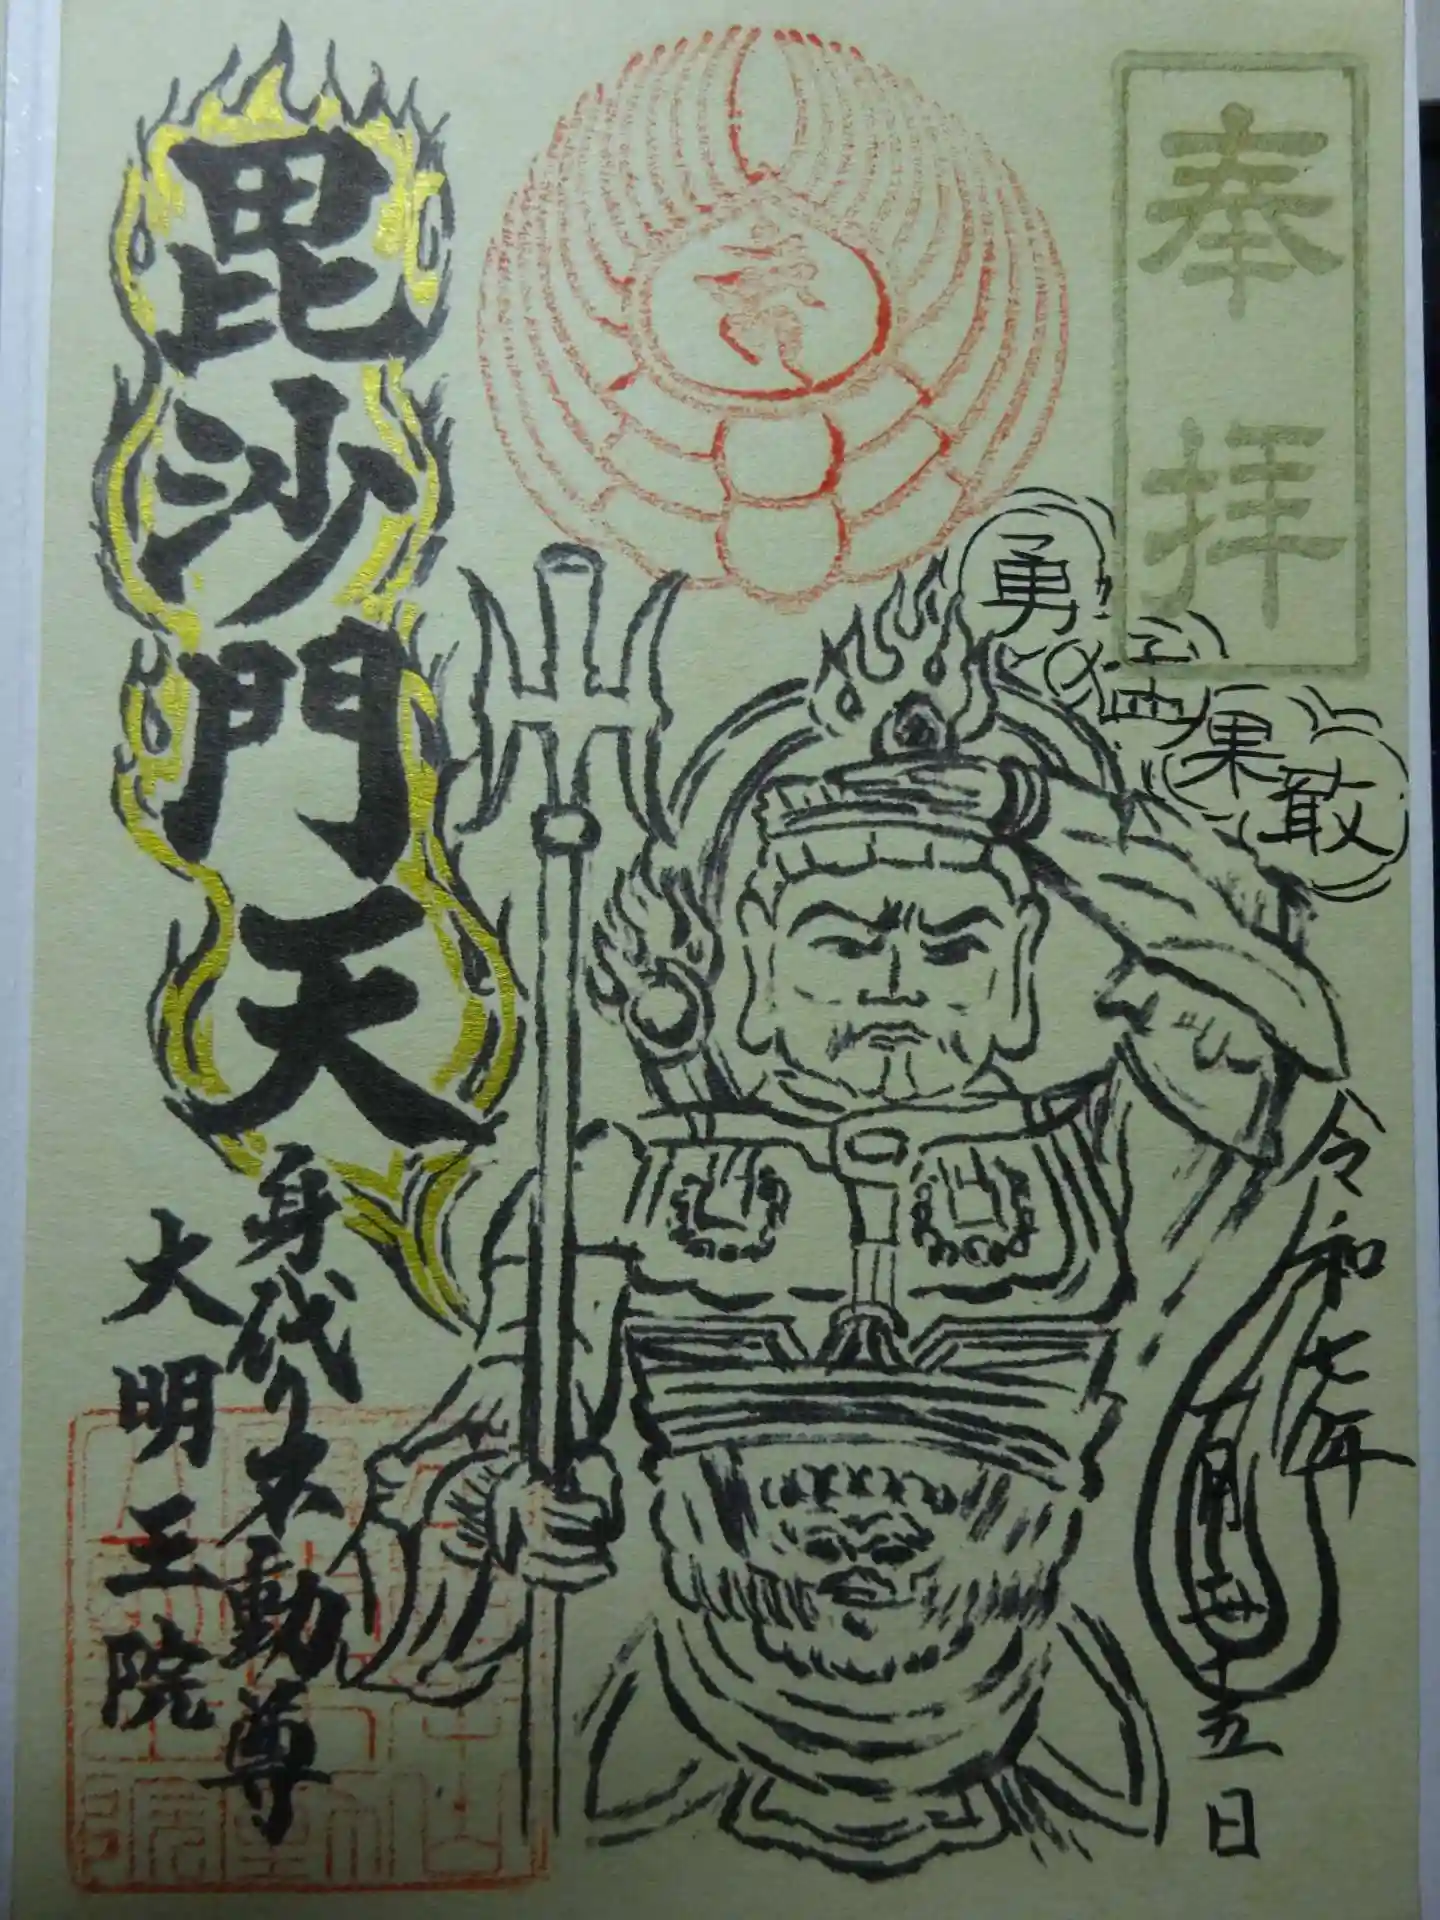 奉拝
勇猛果敢
令和七年
一月廿十五日
毘沙門天
身代り不動尊
大明王院